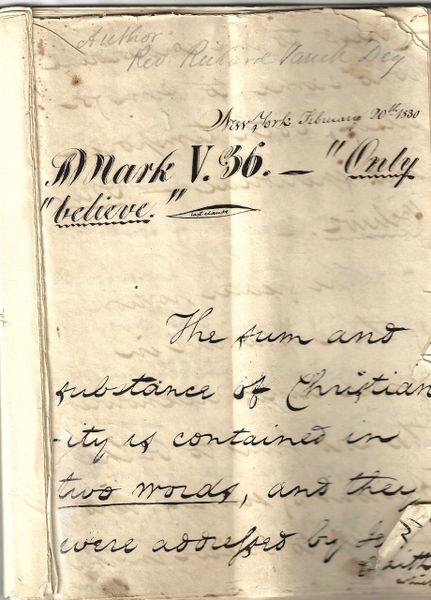 Author
Rev. Richard Varick Dey
New York February 20th 1830
Mark V. 36. — "Only
"believe."
last clause
The sum and
substance of Christian
-ity is contained in
two words, and they
were addressed by